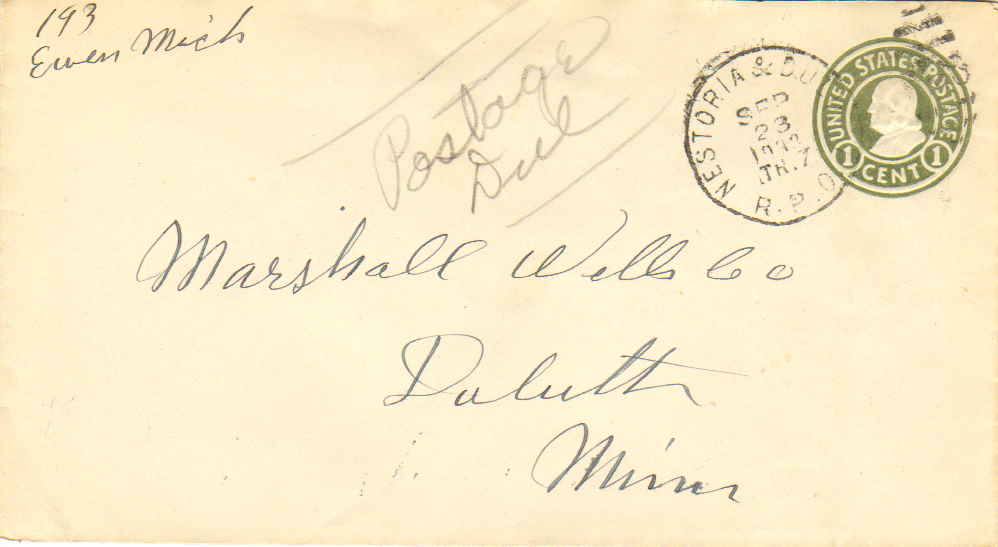 193
Ewen Mich
Postage
Due
NESTORIA & DU
SEP
23
TR.7
R.P.O.
UNITED STATES POSTAGE
1 CENT 1
Marshall Wells Co
Duluth
Minn